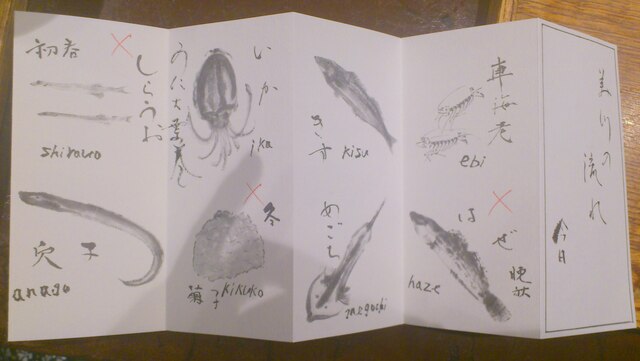 美川の流れ
今日
車海老
ebi
×
はぜ
晩秋
haze
きす
kisu
めごち
megochi
いか
ika
×
冬
菊子
kikuko
×
初春
しらうお
shirauo
穴子
anago